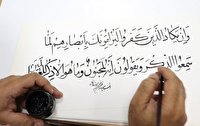 وإن يكاد الذين كفروا ليزلقونك بأبصارهم لما
سمعوا الذكر ويقولون إنه لمجنون وما هو إلا ذكر